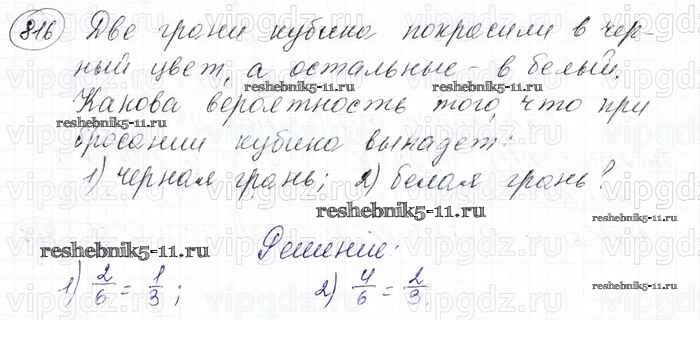 816 Две грани кубика покрасили в чер-
ный цвет, а остальные - в белый.
reshebnik5-11.ru reshebnik5-11.ru
Какова вероятность того, что при
reshebnik5-11.ru
бросании кубика выпадет:
1) черная грань; 2) белая грань?
reshebnik5-11.ru
reshebnik5-11.ru Решение:
1) 2/6 = 1/3; 2) 4/6 = 2/3
reshebnik5-11.ru
reshebnik5-11.ru
vipgdz.ru vipgdz.ru vipgdz.ru vipgdz.ru